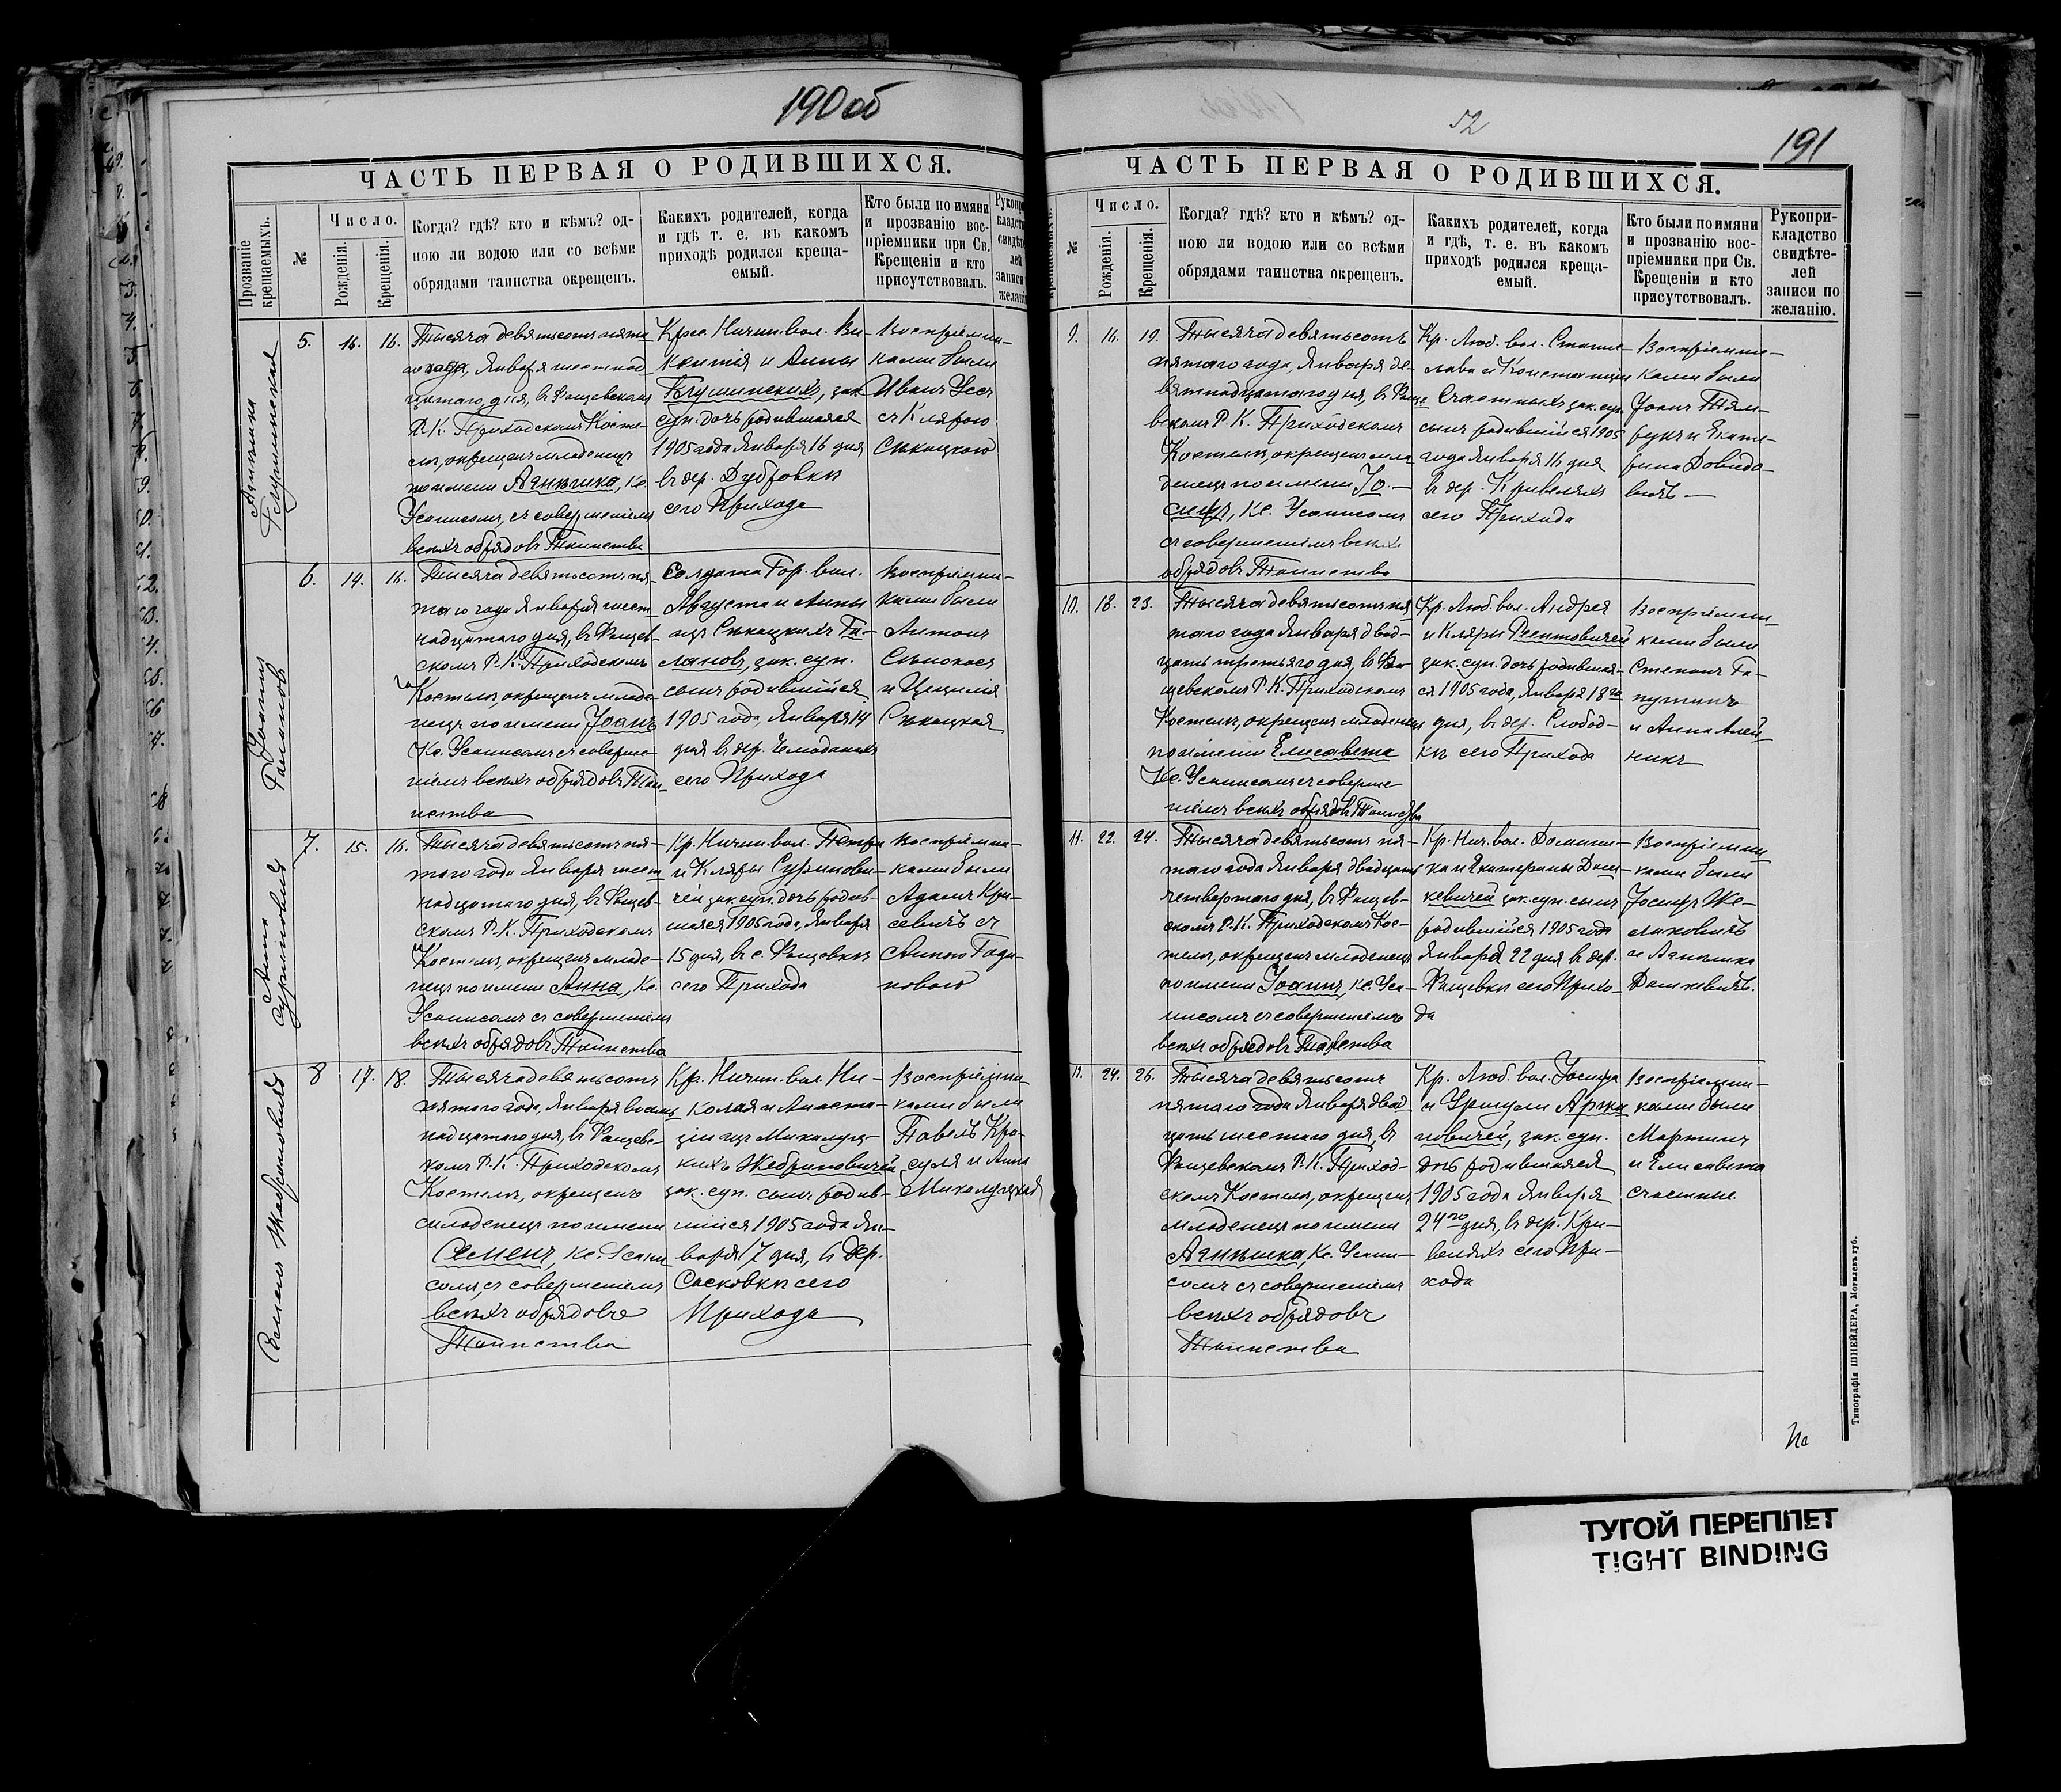 190об
ЧАСТЬ ПЕРВАЯ О РОДИВШИХСЯ.
Прозваніе крещаемыхъ.
№
Число.
Рожденія.
Крещенія.
Когда? гдѣ? кто и кѣмъ? од-
ною ли водою или со всѣми
обрядами таинства окрещенъ.
Какихъ родителей, когда
и гдѣ т. е. въ какомъ
приходѣ родился креща-
емый.
Кто были по имяни
и прозванію вос-
пріемники при Св.
Крещеніи и кто
присутствовалъ.
Агнѣшка
5.
16.
16.
Тысяча девятьсотъ пята
го года, Января шестнад
цатаго дня, въ Фащевскомъ
Р. К. Приходскомъ Косте-
лѣ, окрещенъ младенецъ
по имени Агнѣшка, Кс.
Усписомъ, съ совершеніемъ
всѣхъ обрядовъ Таинства
Крес. Ничип. вол. Ви-
кентія и Анны
зак.
суп. дочь родившаяся
1905 года Января 16 дня
въ дер. Дубровкѣ
сего Прихода
Воспріемни-
ками были
Иванъ Усъ
съ Клярою
Сѣкацкою
Іоаннъ
Галановъ
6.
14.
16.
Тысяча девятьсотъ пя-
таго года Января шест
надцатаго дня, въ Фащев-
скомъ Р. К. Приходскомъ
Костелѣ, окрещенъ младе-
нецъ по имени Іоаннъ
Кс. Усписомъ съ соверше-
ніемъ всѣхъ обрядовъ Таи-
нства
Солдата Гор. вол.
Августа и Анны
изъ Сѣкацкихъ Га-
лановъ, зак. суп.
сынъ родившійся
1905 года, Января 14
дня въ дер. Чемоданахъ
сего Прихода
Воспріемни-
ками были
Антонъ
Сѣнокосъ
и Цецилія
Сѣкацкая
Анна
Суриновичъ
7.
15.
16.
Тысяча девятьсотъ пя-
таго года Января шест
надцатаго дня, въ Фащев-
скомъ Р. К. Приходскомъ
Костелѣ, окрещенъ младе-
нецъ по имени Анна, Кс.
Усписомъ съ совершеніемъ
всѣхъ обрядовъ Таинства
Кр. Ничип. вол. Петра
и Кляры Суринови-
чей зак. суп. дочь родив-
шаяся 1905 года, Января
15 дня, въ с. Фащевкѣ
сего Прихода
Воспріемни-
ками были
Адамъ Кри-
севичъ съ
Анною Гади-
новою
8
17.
18.
Тысяча девятьсотъ
пятаго года, Января восем
надцатаго дня, въ Фащевс-
комъ Р. К. Приходскомъ
Костелѣ, окрещенъ
младенецъ по имени
Семенъ, Кс. Успи
сомъ, съ совершеніемъ
всѣхъ обрядовъ
Таинства
Кр. Ничип. вол. Ни-
колая и Анаста-
ціи изъ Микалуц-
кихъ Жебриковичей
зак. суп. сынъ родив-
шійся 1905 года Ян-
варя 17 дня, въ дер.
Сасковкѣ сего
Прихода
Воспріемни
ками были
Павелъ Кра-
суля и Анна
Микалуцкая
52
191
ЧАСТЬ ПЕРВАЯ О РОДИВШИХСЯ.
№
Число.
Рожденія.
Крещенія.
Когда? гдѣ? кто и кѣмъ? од-
ною ли водою или со всѣми
обрядами таинства окрещенъ.
Какихъ родителей, когда
и гдѣ, т. е. въ какомъ
приходѣ родился креща-
емый.
Кто были по имяни
и прозванію вос-
пріемники при Св.
Крещеніи и кто
присутствовалъ.
Рукопри-
кладство
свидѣте-
лей
записи по
желанію.
9.
16.
19.
Тысяча девятьсотъ
пятаго года, Января де-
вятнадцатаго дня, въ Фаще
вскомъ Р. К. Приходскомъ
Костелѣ, окрещенъ мла
денецъ по имени Іо-
сифъ, Кс. Усписомъ
съ совершеніемъ всѣхъ
обрядовъ Таинства
Кр. Люб. вол. Станис-
лава и Констанціи
Счастныхъ зак. суп.
сынъ родившійся 1905
года Января 16 дня
въ дер. Кривеляхъ
сего Прихода
Воспріемни-
ками были
и Екате-
рина Довидо-
вичъ
10.
18.
23.
Тысяча девятьсотъ пя
таго года Января двад-
цать третьяго дня, въ Фа-
щевскомъ Р. К. Приходскомъ
Костелѣ, окрещенъ младенецъ
по имени Елисавета
Кс. Усписомъ съ соверше
ніемъ всѣхъ обрядовъ Таинства
Кр. Люб. вол. Андрея
и Кляры
зак. суп. дочь родившая-
ся 1905 года, Января 18го
дня, въ дер. Слобод-
кѣ сего Прихода
Воспріемни-
ками были
Степанъ
и Анна Алей-
никъ
11.
22.
24.
Тысяча девятьсотъ пя-
таго года Января двадцать
четвертаго дня, въ Фащев-
скомъ Р. К. Приходскомъ Кос-
телѣ, окрещенъ младенецъ
по имени Іоаннъ, Кс. Усп-
исомъ съ совершеніемъ
всѣхъ обрядовъ Таинства
Кр. Нич. вол. Домини-
ка и Екатерины Даш-
кевичей зак. суп. сынъ
родившійся 1905 года
Января 22 дня въ дер.
Фащевкѣ сего Прихо-
да
Воспріемни
ками были
Іосифъ
и Агнѣшка
Дашкевичъ.
24.
26.
Тысяча девятьсотъ
пятаго года Января двад-
цать шестаго дня, въ
Фащевскомъ Р. К. Приход-
скомъ Костелѣ, окрещенъ
младенецъ по имени
Агнѣшка, Кс. Успи-
сомъ съ совершеніемъ
всѣхъ обрядовъ
Таинства
Кр. Люб. вол. Іосифа
и Уршули
зак. суп.
дочь родившаяся
1905 года Января
24го дня, въ дер. Кри-
веляхъ сего При-
хода
Воспріемни-
ками были
Мартинъ
и Елисавета
Счастные
Типографія ШНЕЙДЕРА, Могилевъ губ.
ТУГОЙ ПЕРЕПЛЕТ
TIGHT BINDING